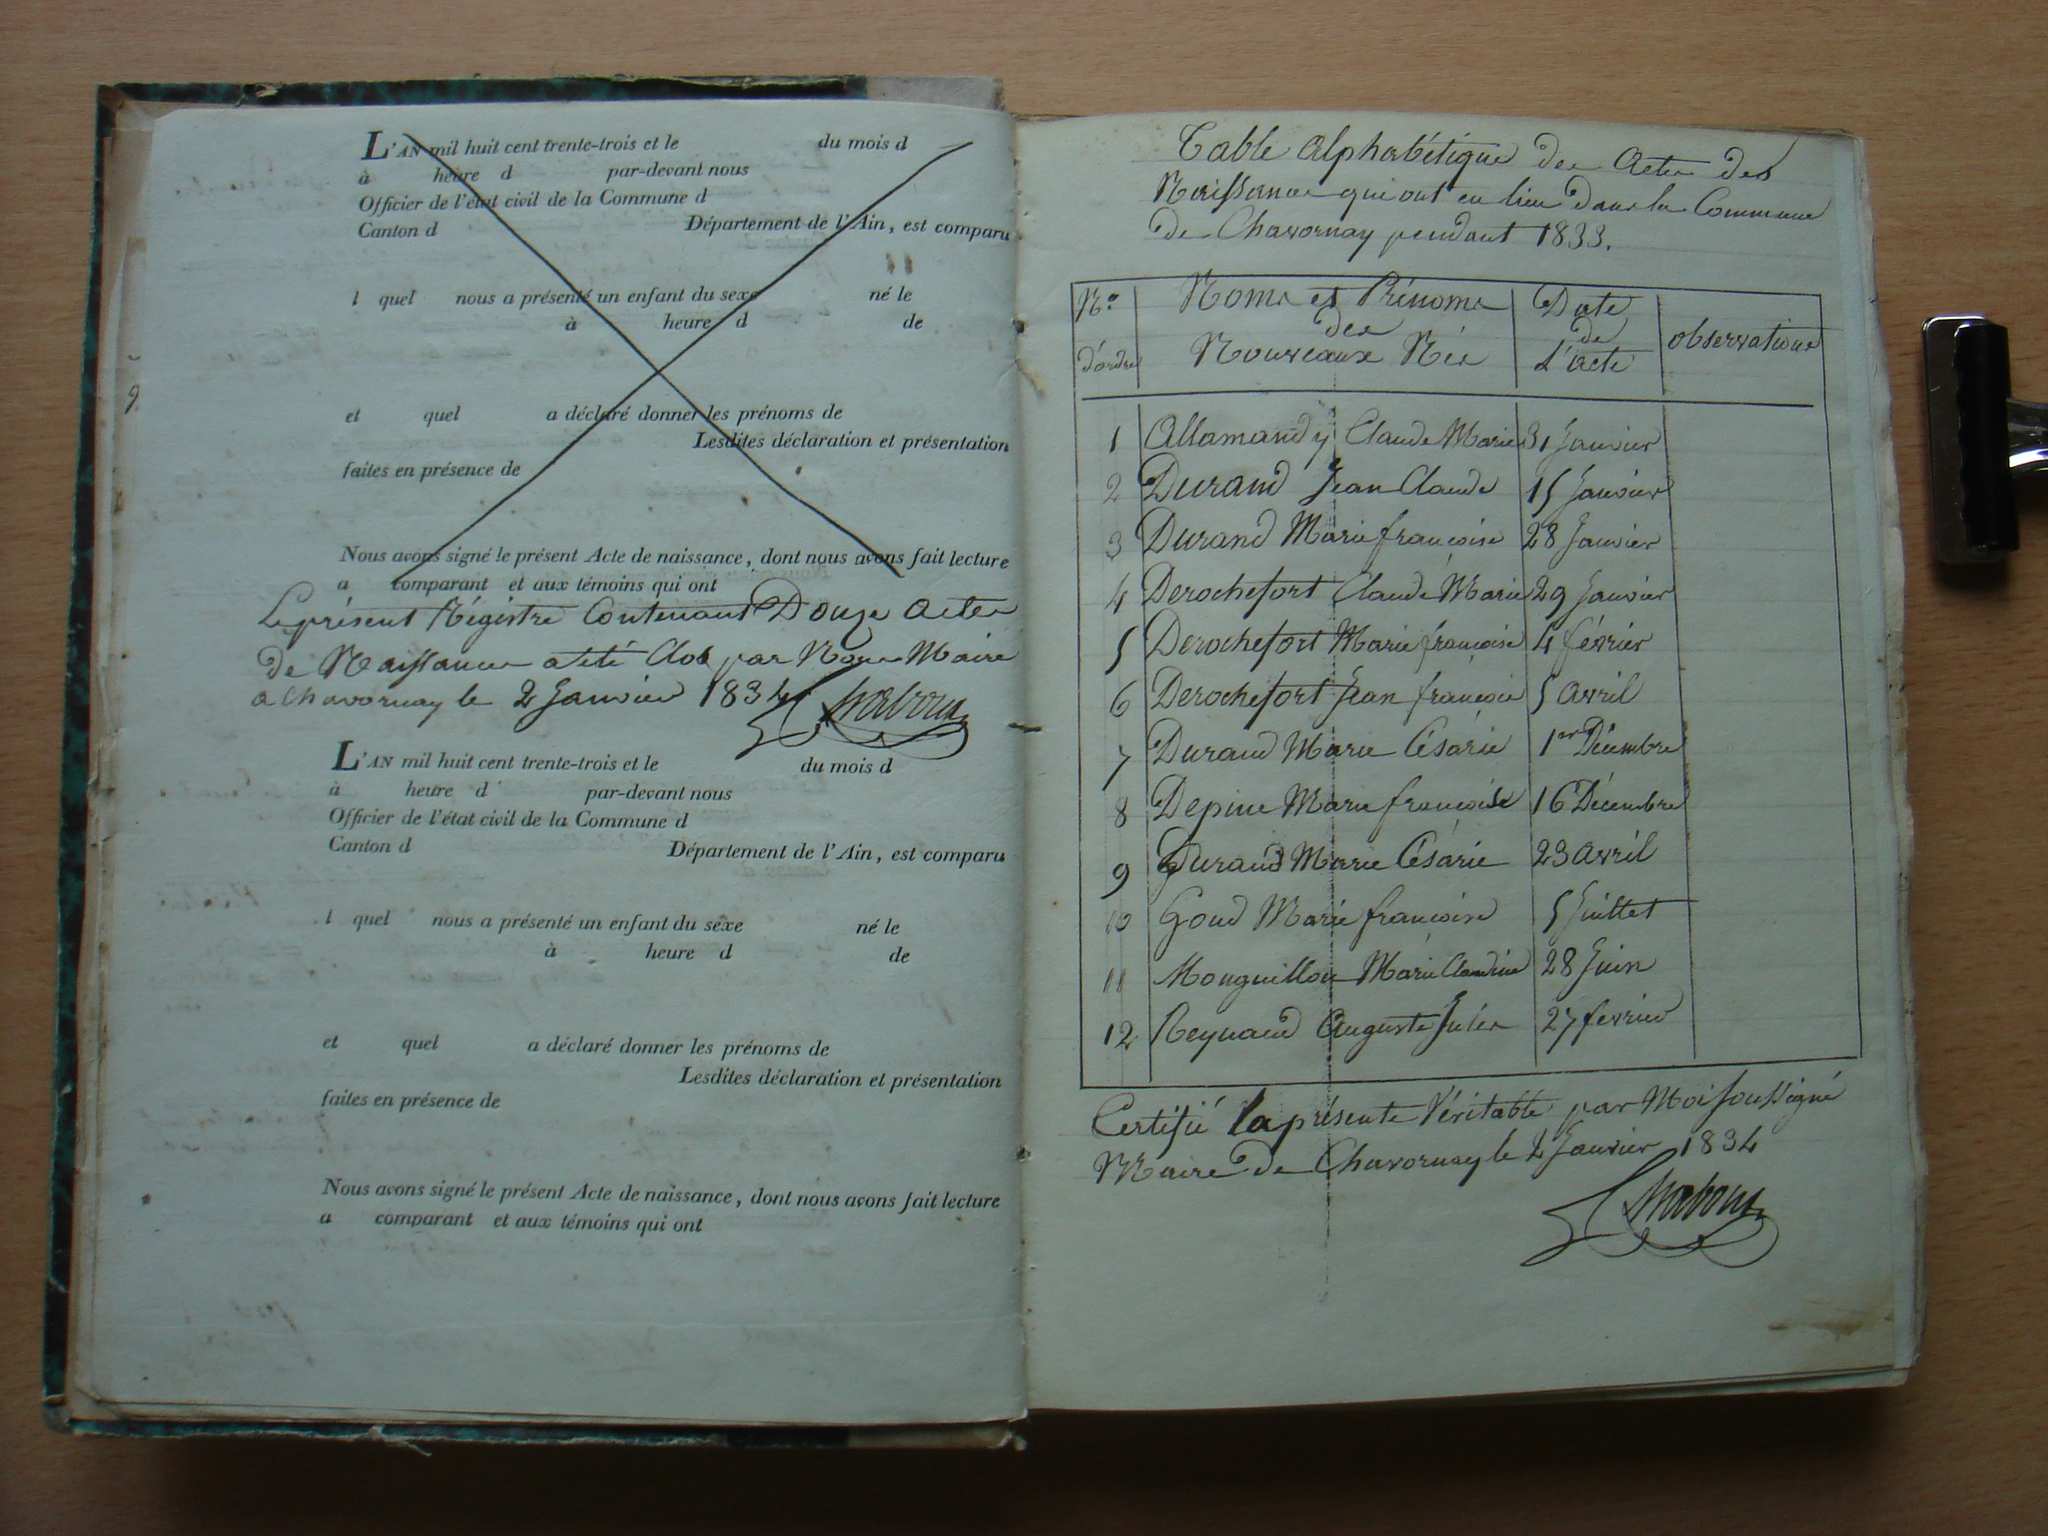 L'AN mil huit cent trente-trois et le du mois d
à heure d par-devant nous
Officier de l'état civil de la Commune d
Canton d Département de l'Ain, est comparu
l quel nous a présenté un enfant du sexe né le
à heure d de
et quel a déclaré donner les prénoms de
Lesdites déclaration et présentation
faites en présence de
Nous avons signé le présent Acte de naissance, dont nous avons fait lecture
a comparant et aux témoins qui ont
Le présent Régistre Contenant Douze actes
de Naissances a été Clos par Nous Maire
a Chavornay le 2 Janvier 1834
L'AN mil huit cent trente-trois et le du mois d
à heure d par-devant nous
Officier de l'état civil de la Commune d
Canton d Département de l'Ain, est comparu
l quel nous a présenté un enfant du sexe né le
à heure d de
et quel a déclaré donner les prénoms de
Lesdites déclaration et présentation
faites en présence de
Nous avons signé le présent Acte de naissance, dont nous avons fait lecture
a comparant et aux témoins qui ont
Table Alphabétique des Actes des
Naissances qui ont eu lieu Dans la Commune
de Chavornay pendant 1833.
Nos d'ordre Noms et Prénoms des Nouveaux Nés Date de L'acte observations
1 Allamandy Claude Marie 31 Janvier
2 Durand Jean Claude 15 Janvier
3 Durand Marie francoise 28 Janvier
4 Derochefort Claude Marie 29 Janvier
5 Derochefort Marie françoise 4 février
6 Derochefort Jean françois 5 avril
7 Durand Marie Césarie 1er Décembre
8 Depine Marie françoise 16 Décembre
9 Durand Marie Césarie 23 avril
10 Goud Marie francoise 5 Juillet
11 Mouguillon Marie Claudine 28 Juin
12 Reynaud Auguste Jules 27 fevrier
Certifié la présente Véritable par Moi soussigné
Maire de Chavornay le 2 Janvier 1834